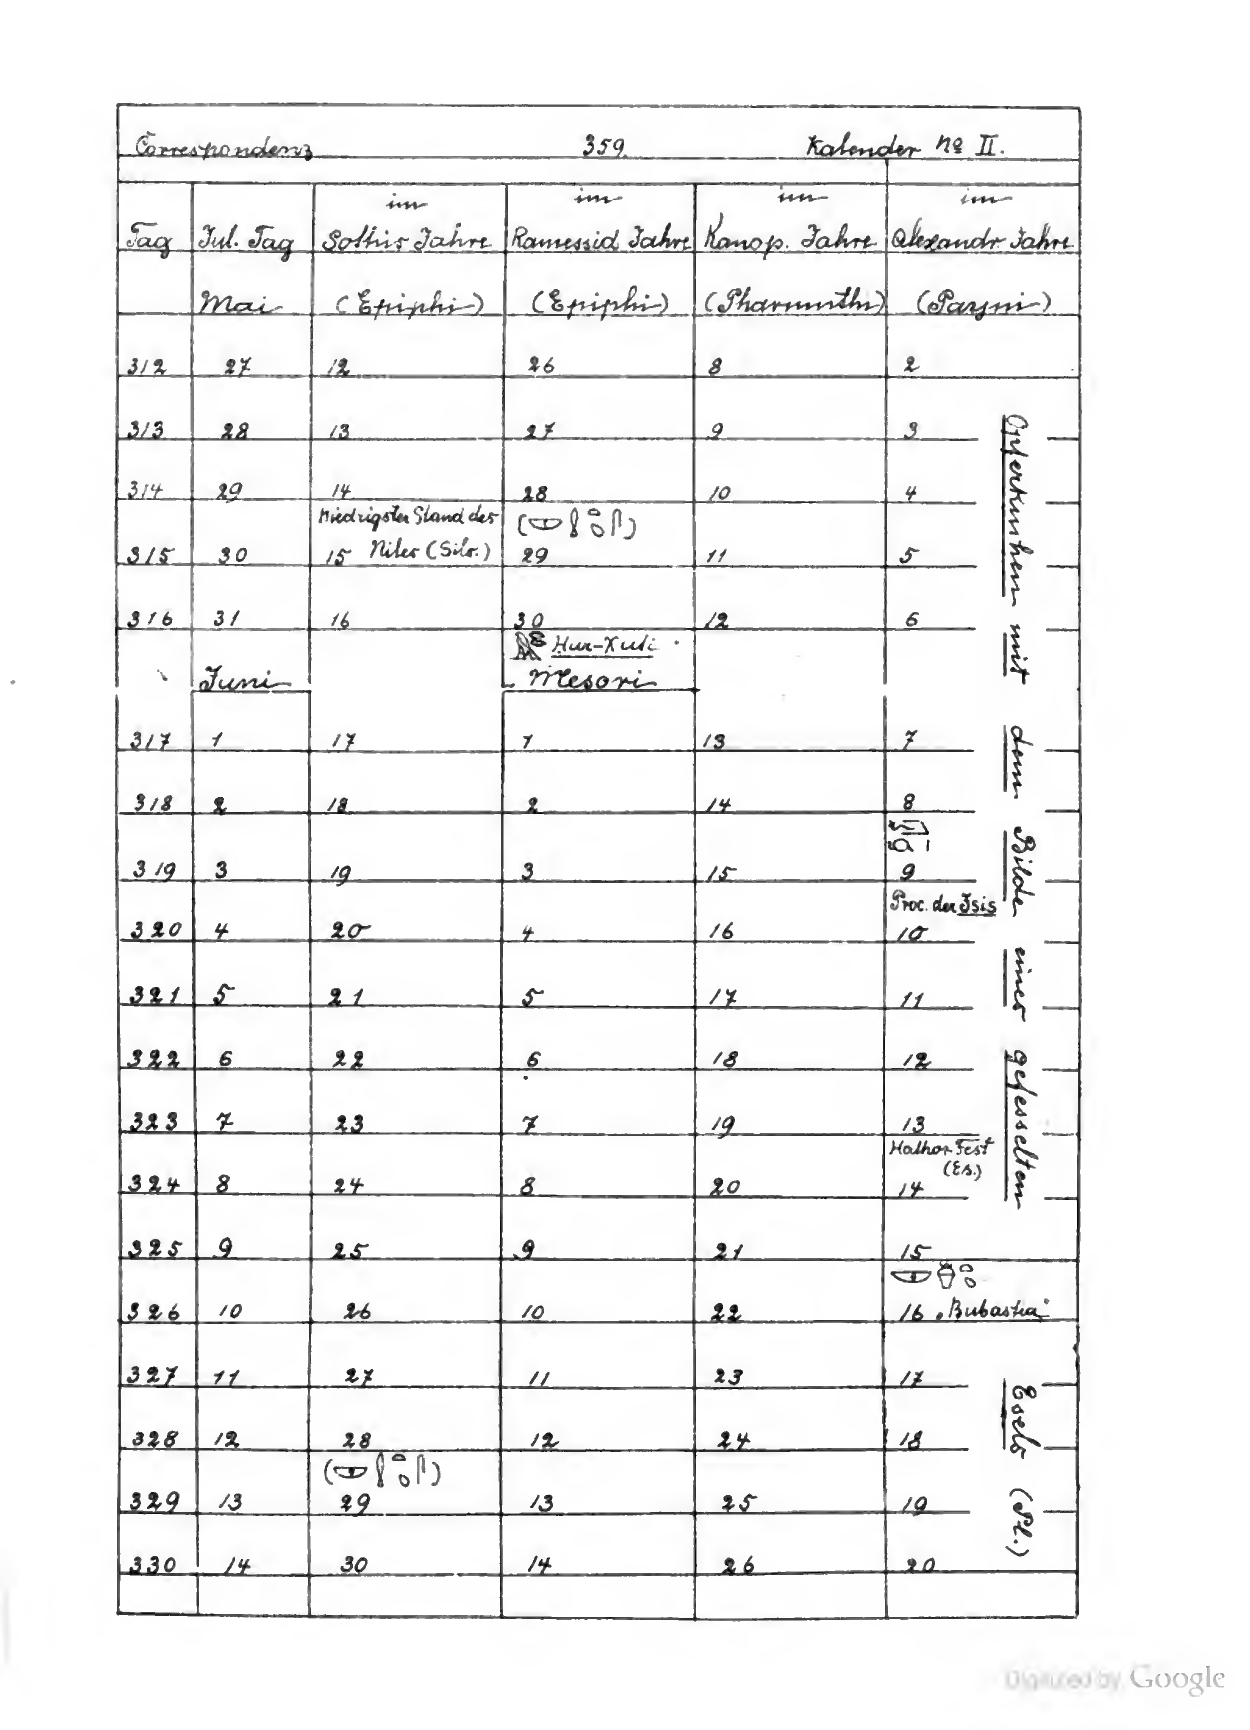 Correspondenz 359. Kalender No II.
Tag Jul. Tag im Sothis Jahre im Ramessid Jahre im Kanop. Jahre im Alexandr. Jahre
Mai (Epiphi) (Epiphi) (Pharmuthi) (Payni)
312 27 12 26 8 2
313 28 13 27 9 3
314 29 14 28 10 4
Niedrigster Stand des
315 30 15 Niles (Silv.) 29 11 5
316 31 16 30 12 6
Hur-Xuti
Juni Mesori
317 1 17 1 13 7
318 2 18 2 14 8
319 3 19 3 15 9
Proc. der Isis
320 4 20 4 16 10
321 5 21 5 17 11
322 6 22 6 18 12
323 7 23 7 19 13
Hathor Fest
(Es.)
324 8 24 8 20 14
325 9 25 9 21 15
326 10 26 10 22 16 „Bubastia"
327 11 27 11 23 17
328 12 28 12 24 18
329 13 29 13 25 19
330 14 30 14 26 20
Opferkuchen mit dem Bilde eines gefesselten Esels (Pl.)
Digitized by Google